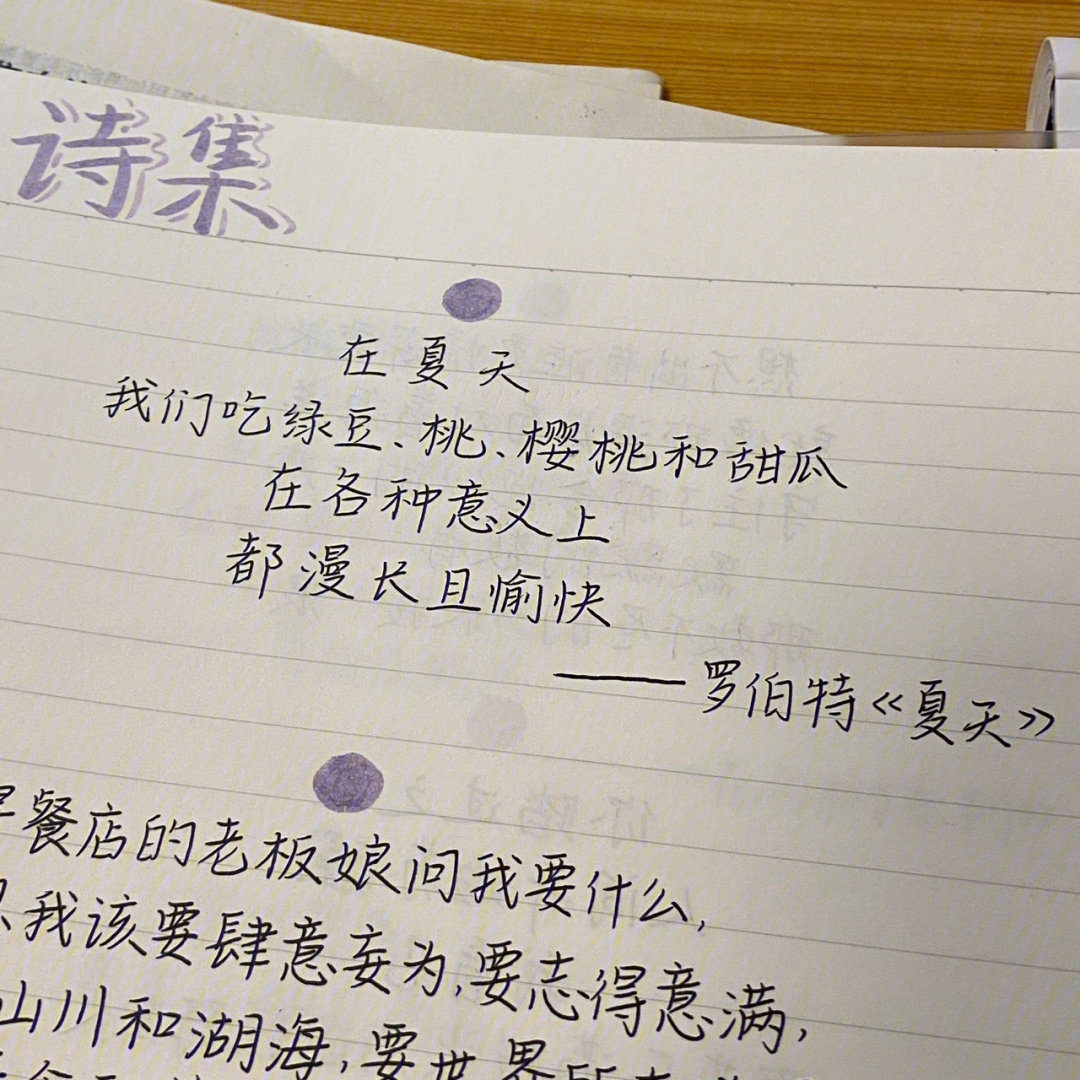 诗集
在夏天
我们吃绿豆、桃、樱桃和甜瓜
在各种意义上
都漫长且愉快
——罗伯特《夏天》
餐店的老板娘问我要什么,
我该要肆意妄为,要志得意满,
山川和湖海,要世界所有